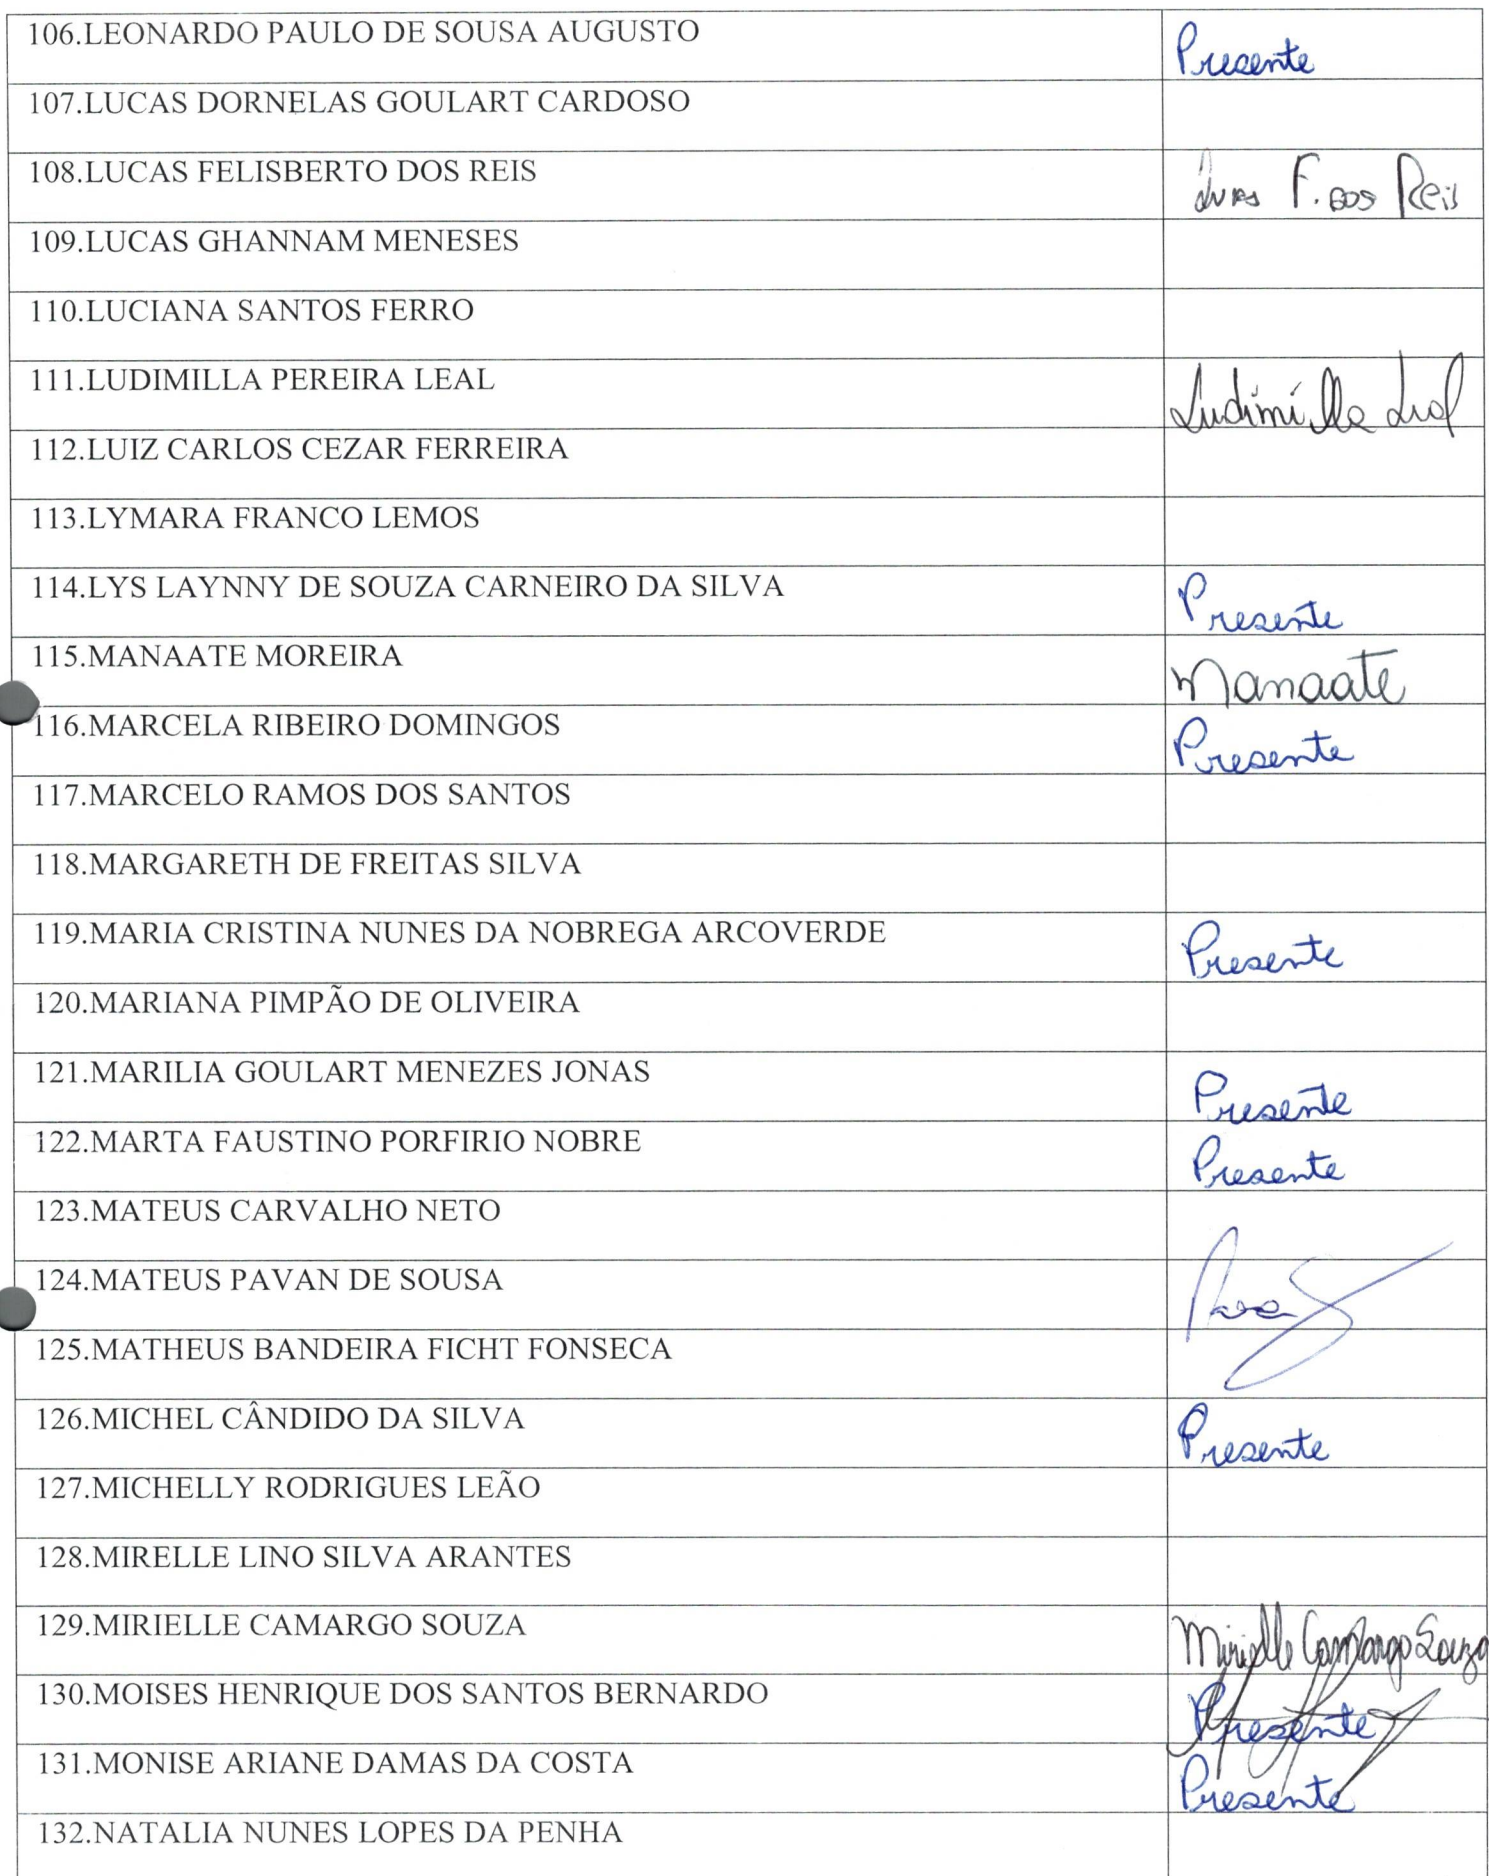 106.LEONARDO PAULO DE SOUSA AUGUSTO Presente
107.LUCAS DORNELAS GOULART CARDOSO
108.LUCAS FELISBERTO DOS REIS Lucas F. dos Reis
109.LUCAS GHANNAM MENESES
110.LUCIANA SANTOS FERRO
111.LUDIMILLA PEREIRA LEAL Ludimilla Leal
112.LUIZ CARLOS CEZAR FERREIRA
113.LYMARA FRANCO LEMOS
114.LYS LAYNNY DE SOUZA CARNEIRO DA SILVA Presente
115.MANAATE MOREIRA Manaate
116.MARCELA RIBEIRO DOMINGOS Presente
117.MARCELO RAMOS DOS SANTOS
118.MARGARETH DE FREITAS SILVA
119.MARIA CRISTINA NUNES DA NOBREGA ARCOVERDE Presente
120.MARIANA PIMPÃO DE OLIVEIRA
121.MARILIA GOULART MENEZES JONAS Presente
122.MARTA FAUSTINO PORFIRIO NOBRE Presente
123.MATEUS CARVALHO NETO
124.MATEUS PAVAN DE SOUSA
125.MATHEUS BANDEIRA FICHT FONSECA
126.MICHEL CÂNDIDO DA SILVA Presente
127.MICHELLY RODRIGUES LEÃO
128.MIRELLE LINO SILVA ARANTES
129.MIRIELLE CAMARGO SOUZA Mirielle Camargo Souza
130.MOISES HENRIQUE DOS SANTOS BERNARDO Presente
131.MONISE ARIANE DAMAS DA COSTA Presente
132.NATALIA NUNES LOPES DA PENHA